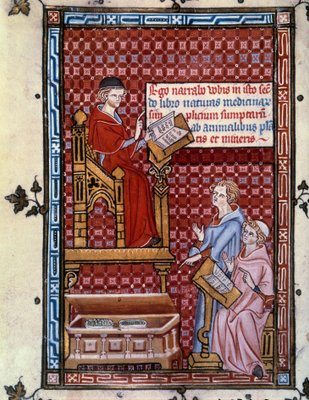 Ego narrabo vobis in isto secū
do libro naturas medicinaꝝ
simplicium sumptarū
ab animalibus plā
tis et mineris.